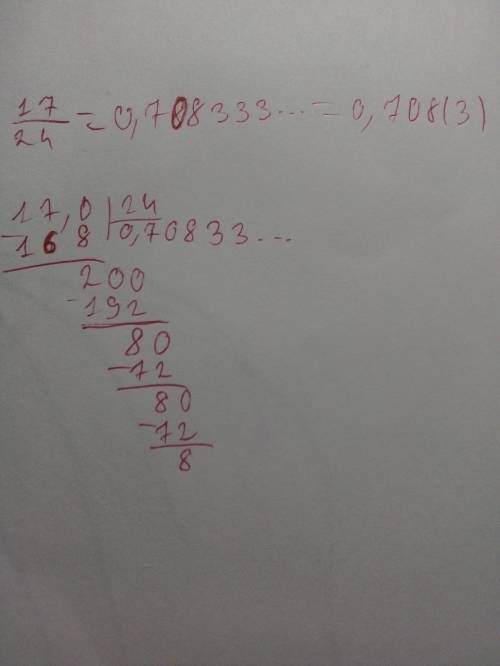 17/24 = 0,708333... = 0,708(3)
17,0 | 24
- 168 | 0,70833...
200
- 192
80
- 72
80
- 72
8